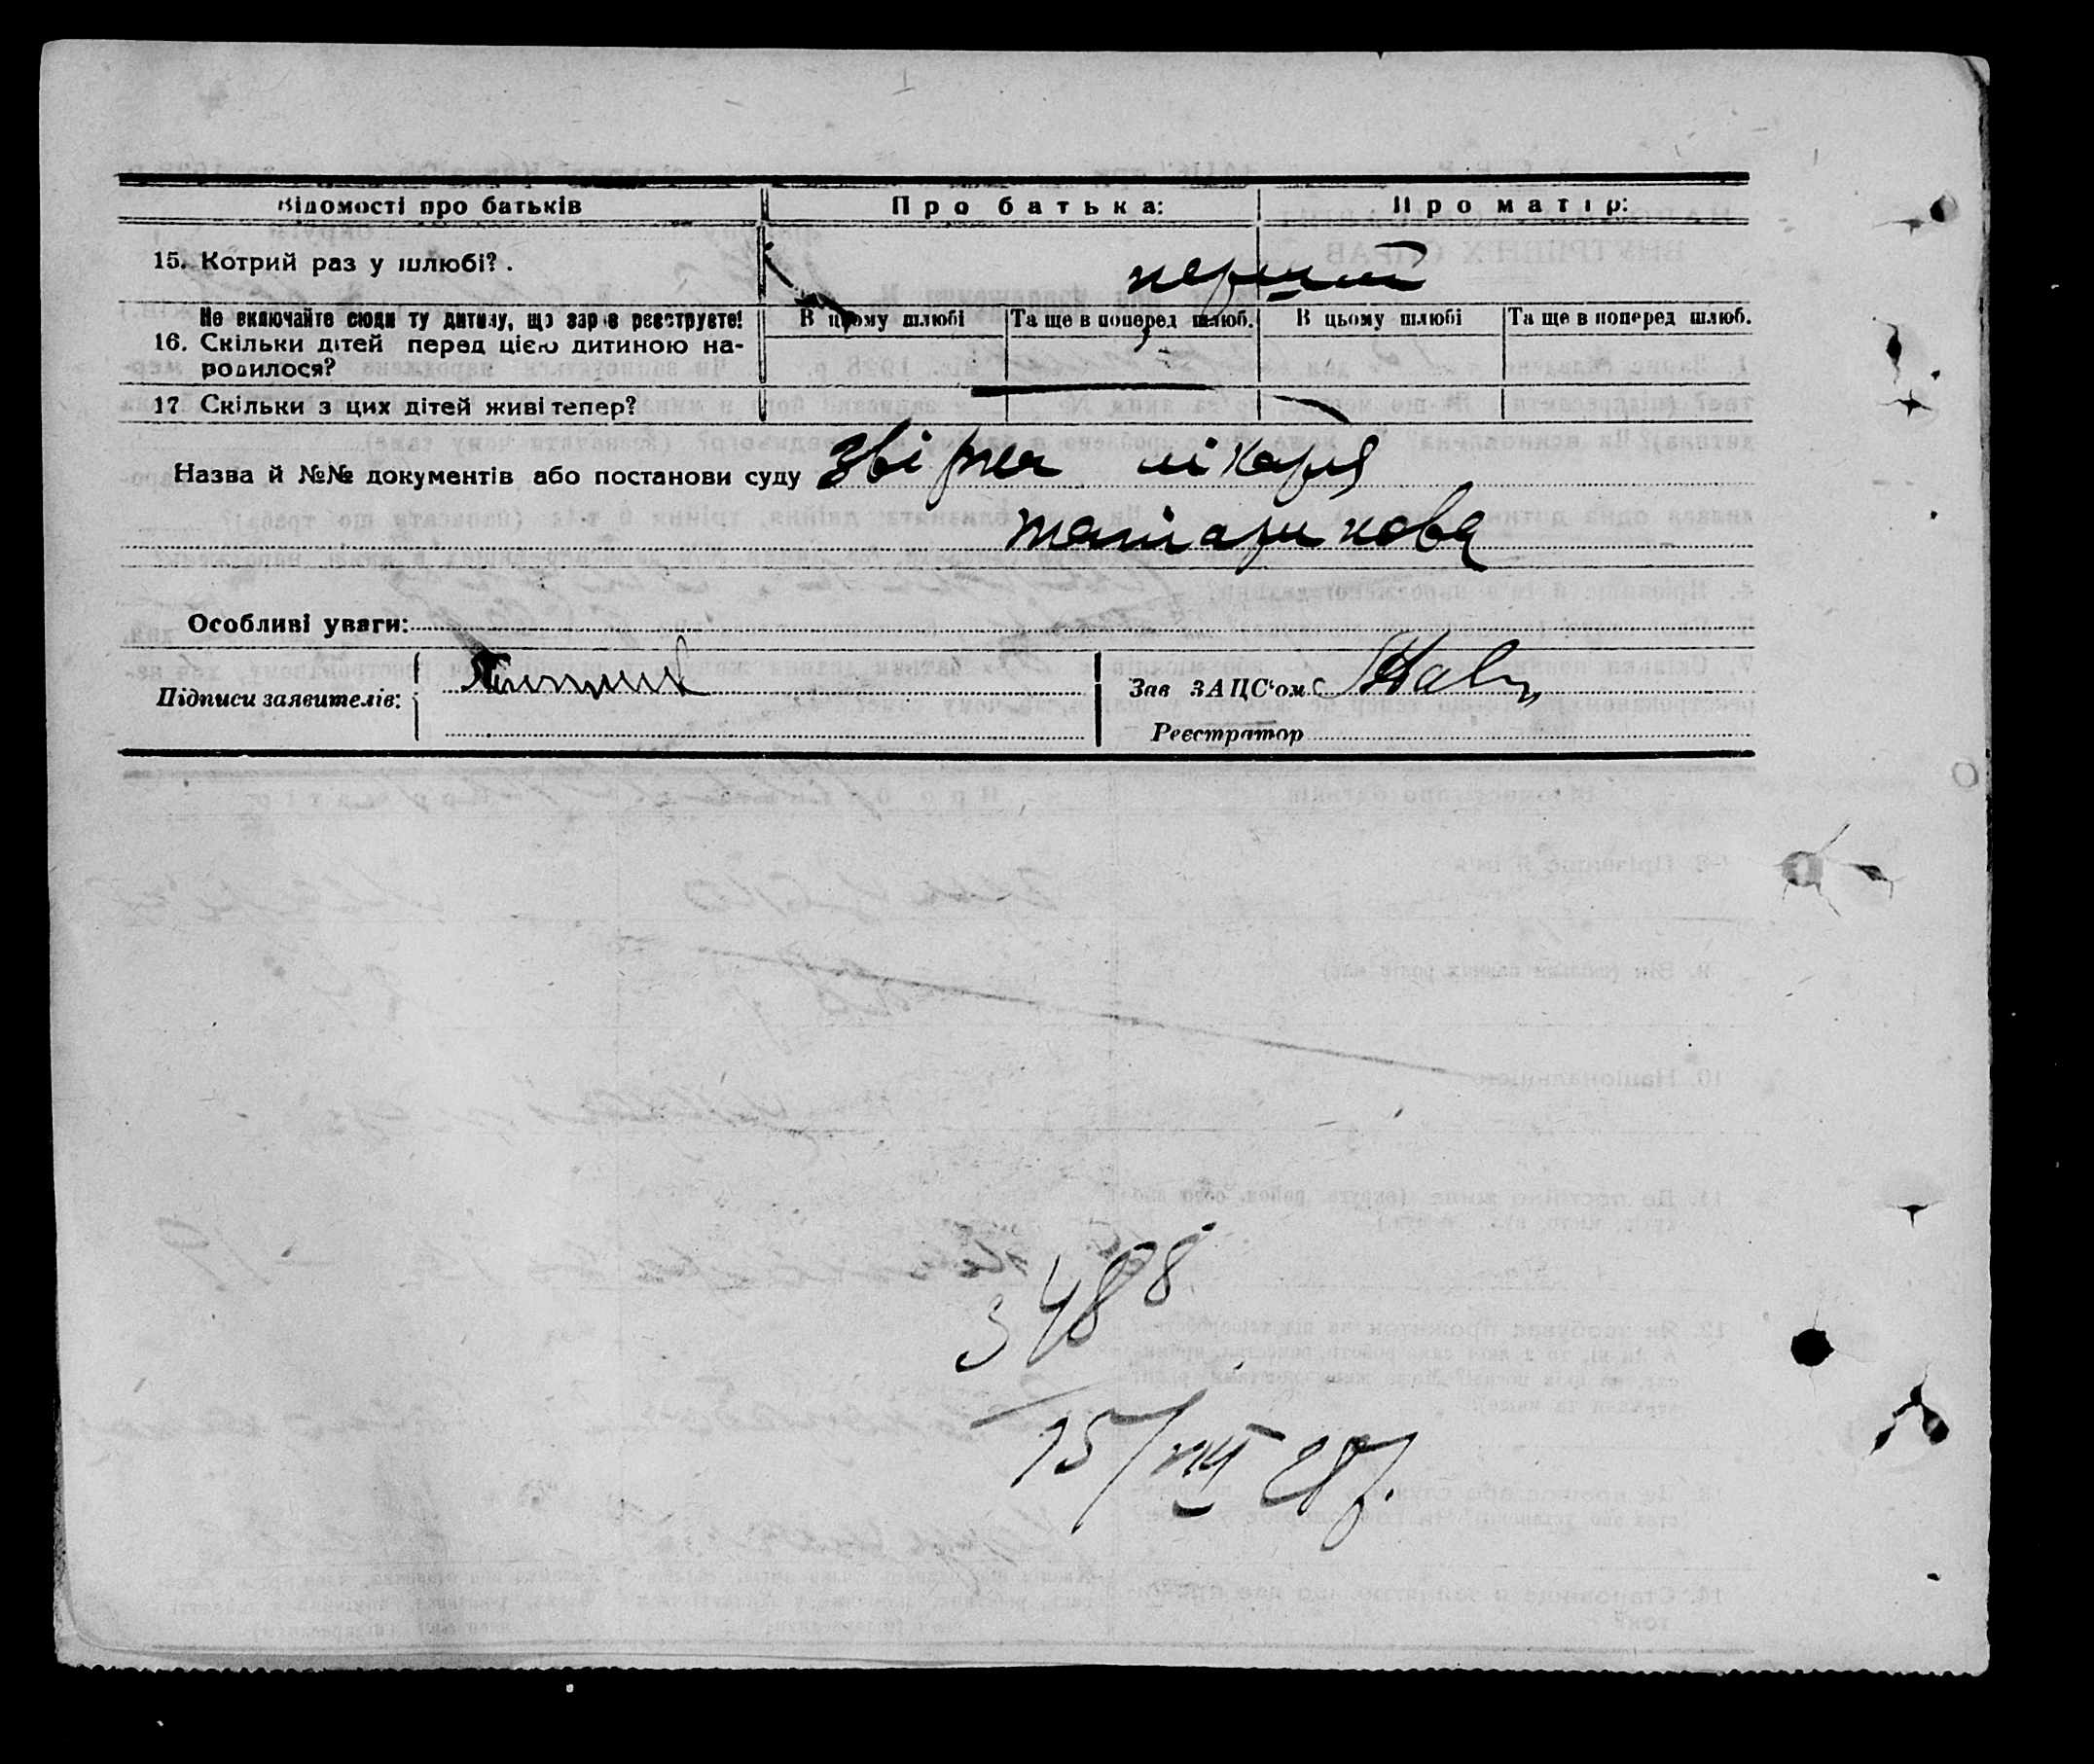 Відомості про батьків Про батька: Про матір:
15. Котрий раз у шлюбі? . перший
Не включайте сюди ту дитину, що зараз реєструєте! В цьому шлюбі Та ще в поперед шлюб. В цьому шлюбі Та ще в поперед шлюб.
16. Скільки дітей перед цією дитиною на-
родилося?
17 Скільки з цих дітей живі тепер?
Назва й №№ документів або постанови суду лікаря
Особливі уваги:
Підписи заявителів: Зав ЗАЦС‘ом
Реєстратор
3488
15/VIII 28р.